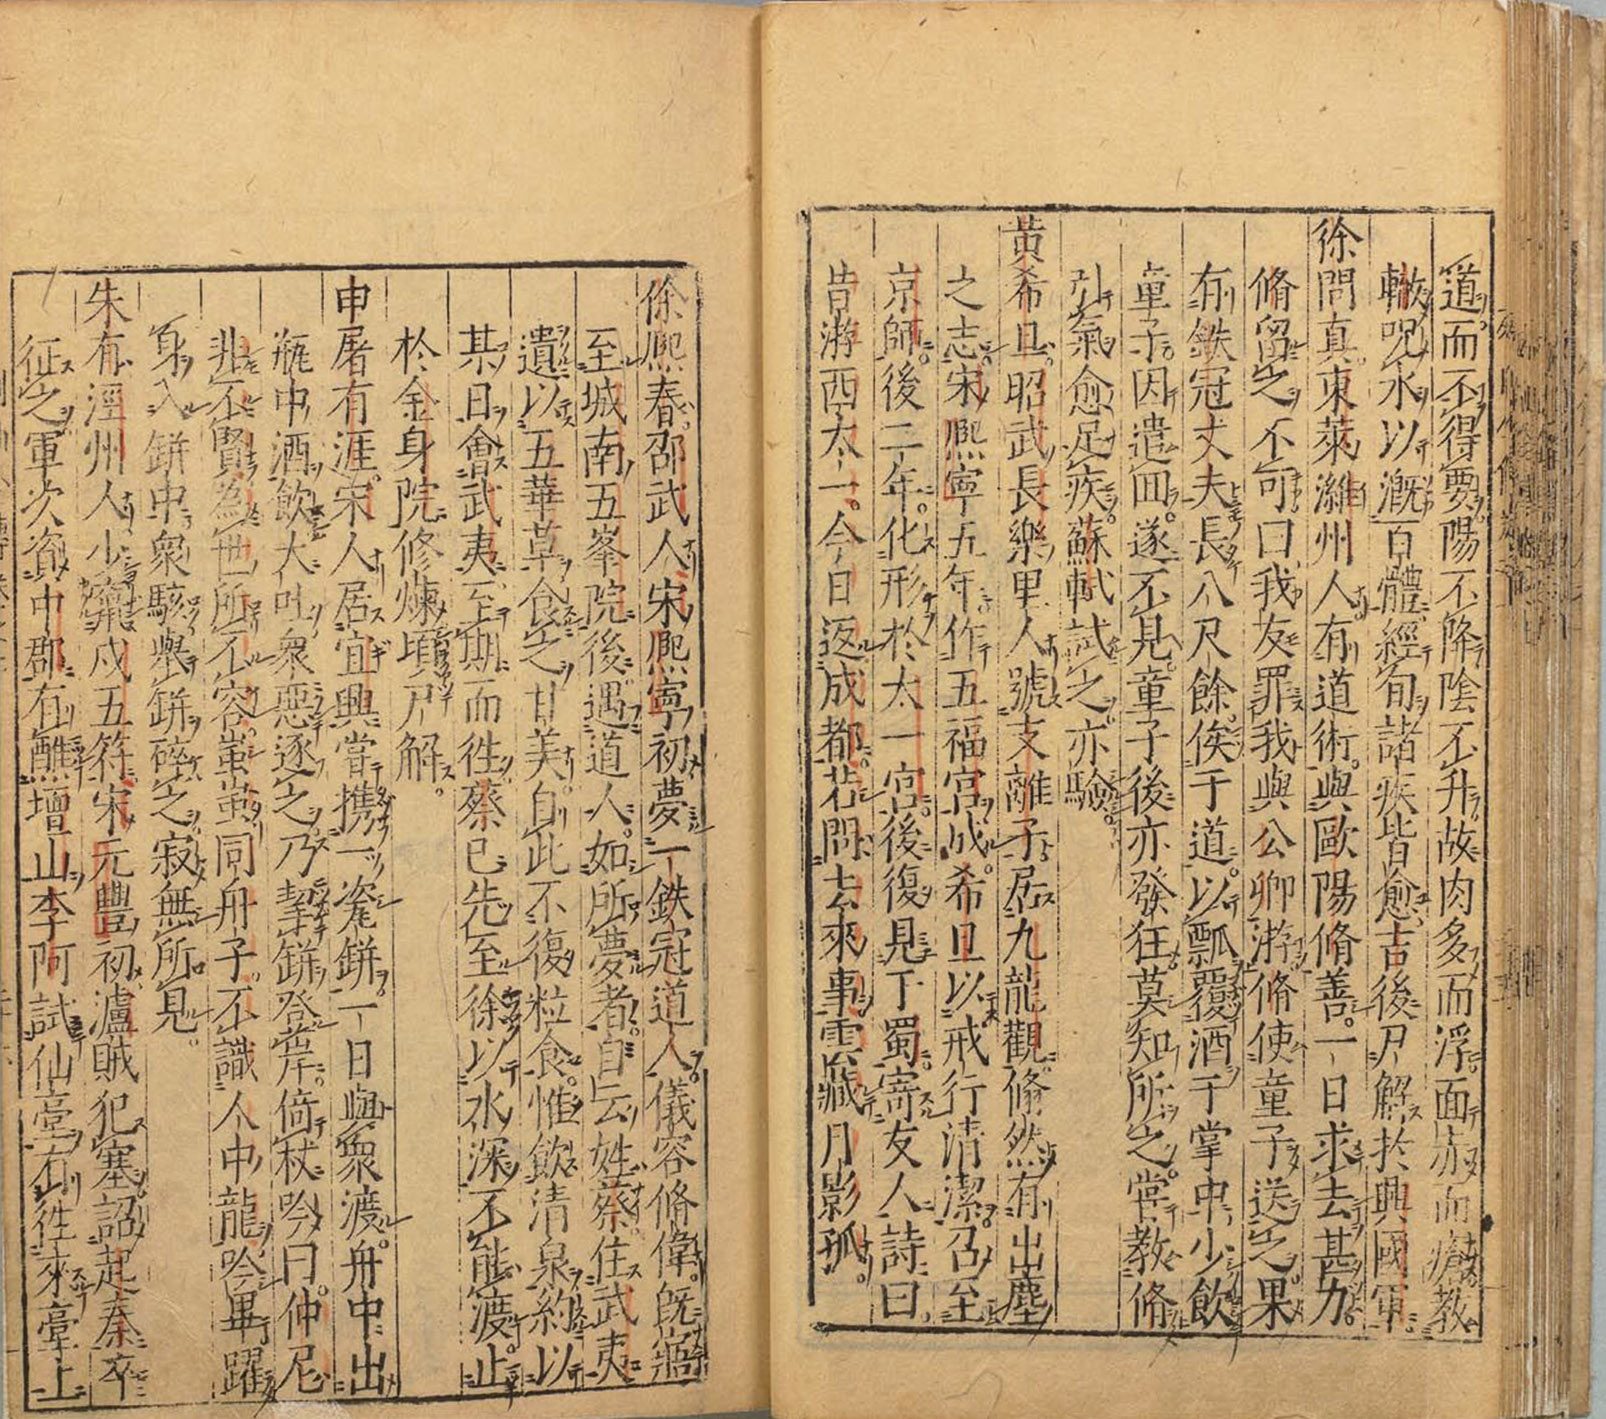 道而不得要陽不降陰不升故肉多而浮面赤而瘡教
轍呪水以漑百體經旬諸疾皆愈吉後尸解於興國軍
徐問真東萊濰州人有道術與歐陽脩善一日求去甚力
脩留之不可曰我友罪我與公卿游脩使童子送之果
有鉄冠丈夫長八尺餘俟于道以瓢覆酒于掌中少飲
童子因遣回遂不見童子後亦發狂莫知所之嘗教脩
引氣愈足疾蘇軾試之亦驗
黃希旦昭武長樂里人號支離子居九龍觀翛然有出塵
之志宋熙寧五年作五福宮成希旦以戒行清潔召至
京師後二年化形於太一宮後復見于蜀寄友人詩曰
昔游西太一今日返成都若問去來事雲藏月影孤
徐熙春邵武人宋熙寧初夢一鉄冠道人儀容脩偉既寤
至城南五峯院後遇道人如所夢者自云姓蔡住武夷
遺以五華草食之甘美自此不復粒食惟飲清泉約以
某日會武夷至期而徃蔡已先至徐以水深不能渡止
於金身院修煉頃尸解
申屠有涯宋人居宜興嘗携一瓷缾一日與衆渡舟中出
瓶中酒飲大吐衆惡逐之乃挈缾登岸倚杖吟曰仲尼
非不賢為世所不容蚩蚩同舟子不識人中龍吟畢躍
身入缾中衆駭與缾碎之寂無所見
朱有涇州人少隷戍五符宋元豐初瀘賊犯塞詔起秦卒
征之軍次資中郡有醮壇山李阿試仙臺有徃來臺上